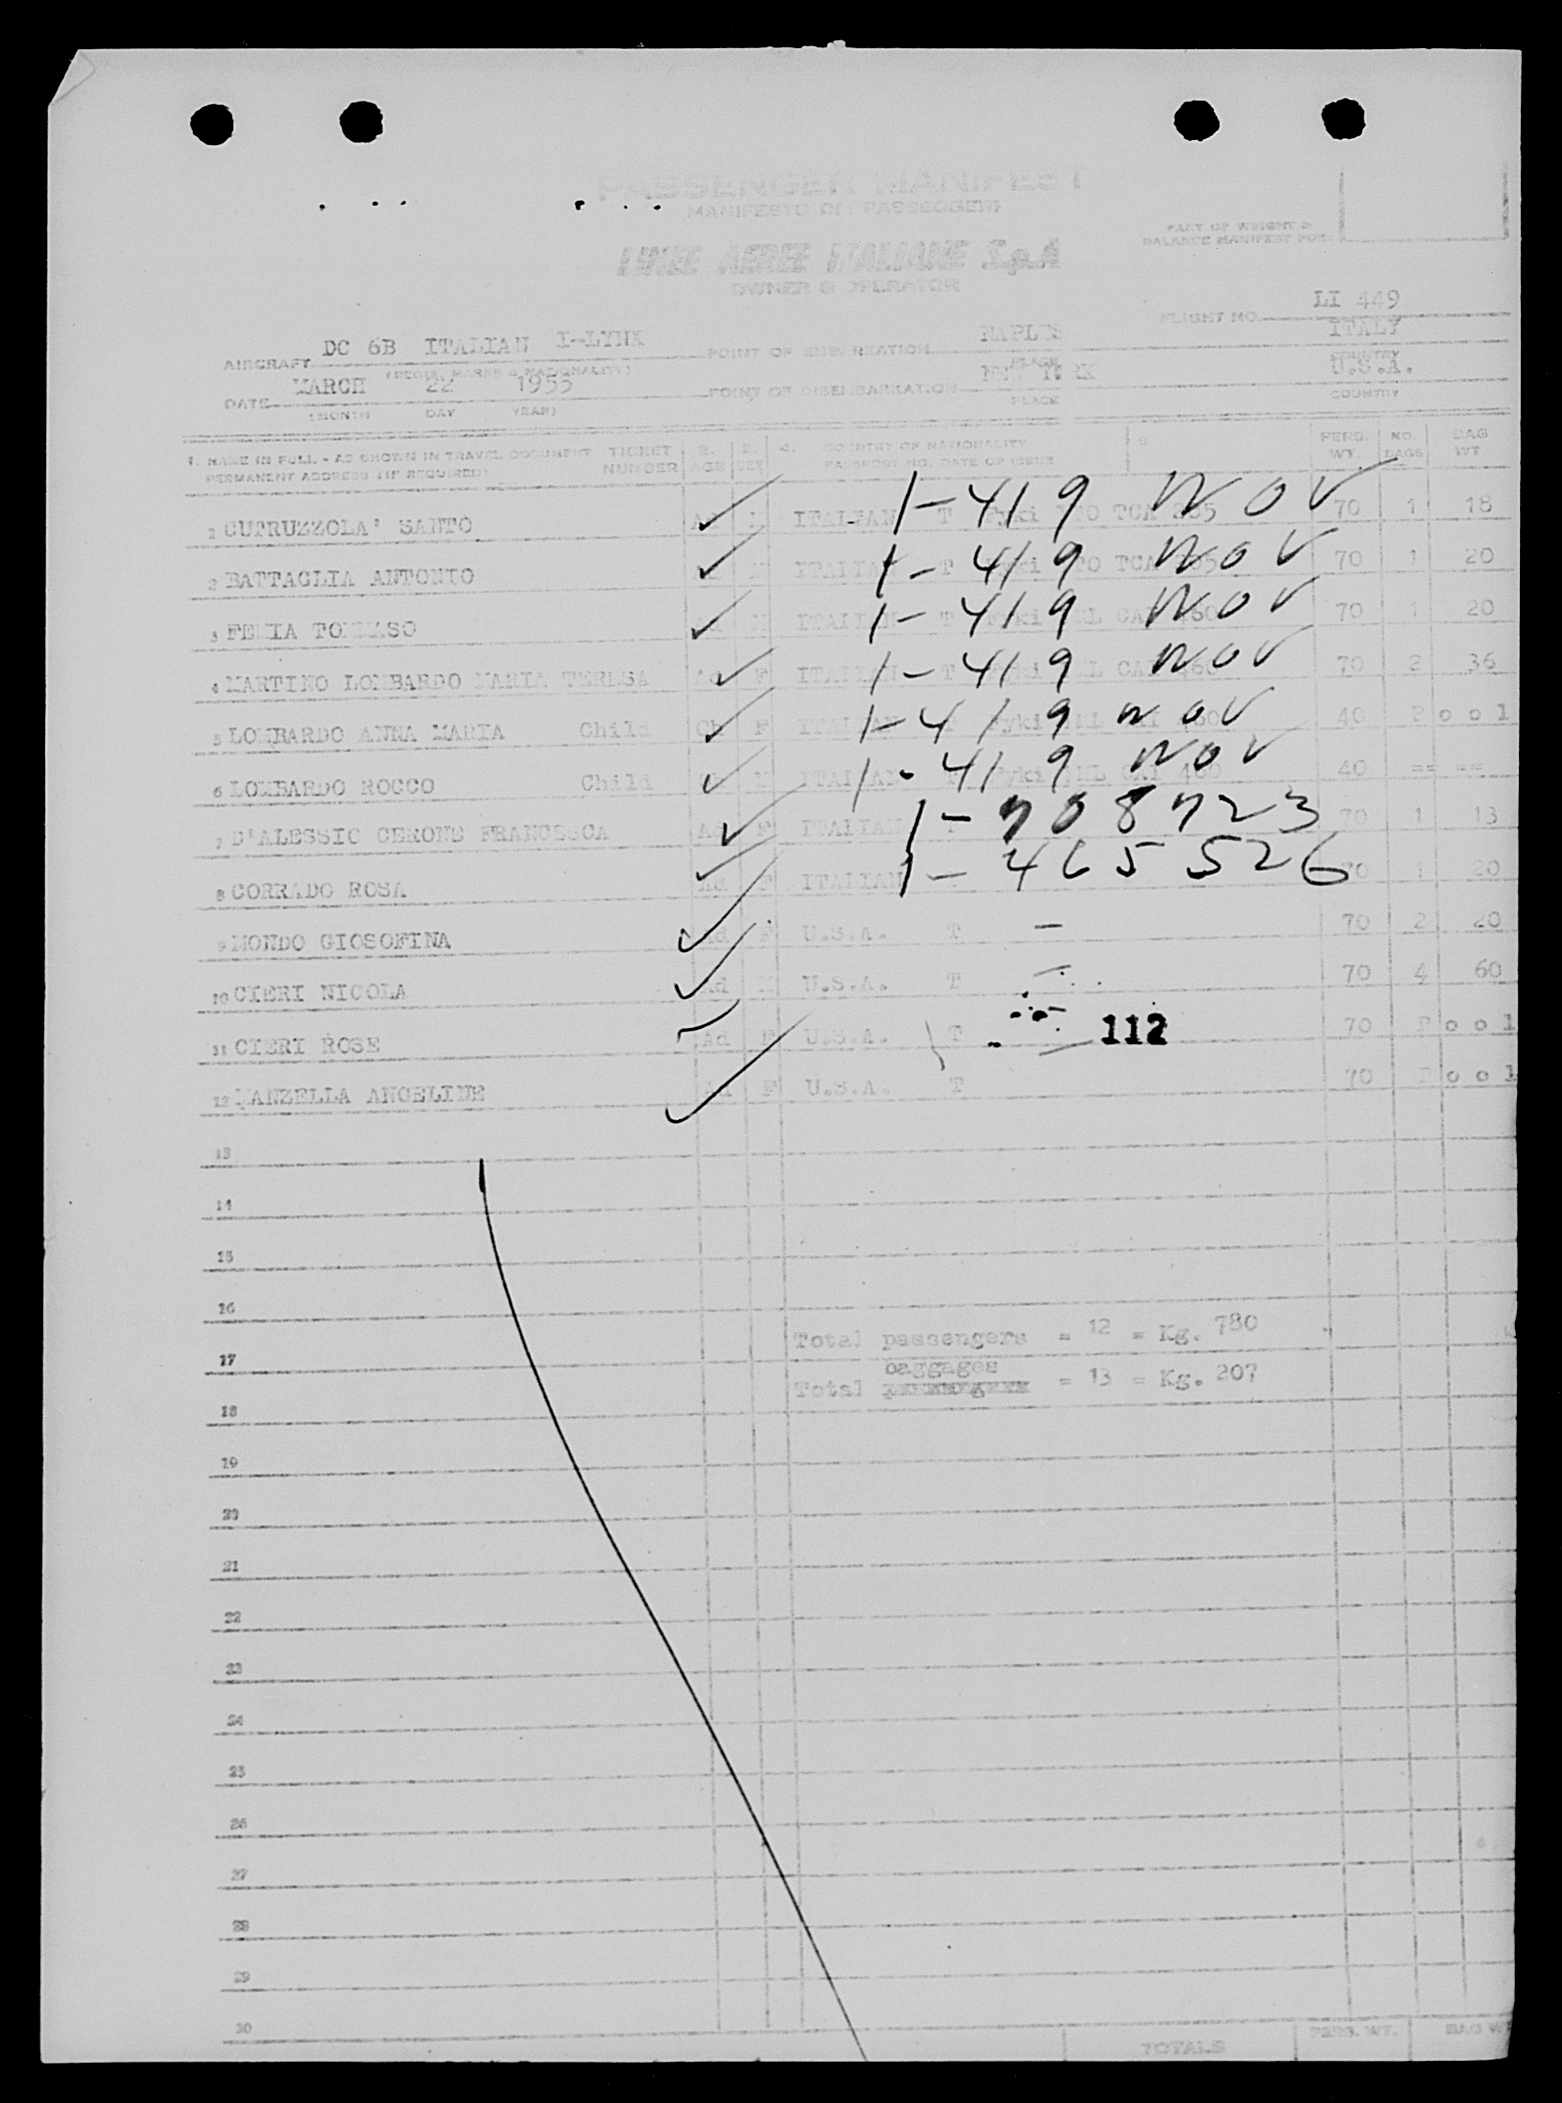 PASSENGER MANIFEST
MANIFESTO DI PASSEGGERI
LINEE AEREE ITALIANE S.p.A
OWNER & OPERATOR
PART OF WEIGHT &
BALANCE MANIFEST FOR
FLIGHT NO. LI 449
AIRCRAFT DC 6B ITALIAN I-LYNX POINT OF EMBARKATION NAPLES ITALY
(REGIS. MARKS & NATIONALITY) PLACE COUNTRY
DATE MARCH 22 1955 POINT OF DISEMBARKATION NEW YORK U.S.A.
(MONTH DAY YEAR) PLACE COUNTRY
1. NAME IN FULL - AS SHOWN IN TRAVEL DOCUMENT TICKET 2. 3. 4. COUNTRY OF NATIONALITY PERS. NO. BAG
PERMANENT ADDRESS (IF REQUIRED) NUMBER AGE SEX PASSPORT NO. DATE OF ISSUE WT. BAGS WT
1 CUTRUZZOLA' SANTO ITALIAN T 1-419 NOV 70 1 18
2 BATTAGLIA ANTONIO T 1-419 NOV 70 1 20
3 FEMIA TOMMASO 1-419 NOV 70 1 20
4 MARTINO LOMBARDO MARIA TERESA Ad F 1-419 NOV 70 2 36
5 LOMBARDO ANNA MARIA Child Ch F 1-419 NOV 40 Pool
6 LOMBARDO ROCCO Child 1-419 NOV 40 == ==
7 D'ALESSIO CERONE FRANCESCA F ITALIAN 1-708723 70 1 13
8 CORRADO ROSA Ad F ITALIAN 1-465526 70 1 20
9 MONDO GIOSOFINA Ad F U.S.A. T - 70 2 20
10 CIERI NICOLA Ad M U.S.A. T 70 4 60
11 CIERI ROSE Ad F U.S.A. T 112 70 Pool
12 MANZELLA ANGELINE Ad F U.S.A. T 70 Pool
13
14
15
16
Total passengers = 12 = Kg. 780
17
baggages
Total = 13 = Kg. 207
18
19
20
21
22
23
24
25
26
27
28
29
30
TOTALS PERS. WT. BAG WT